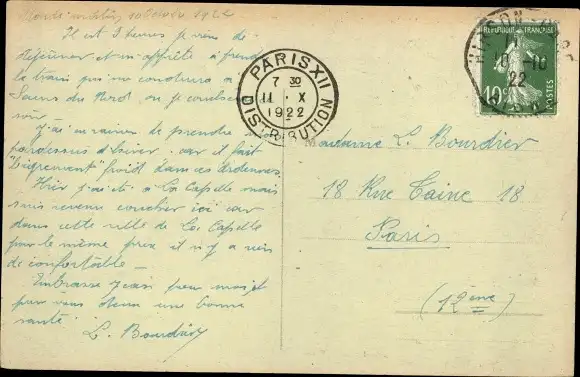 mardi 10 Octobre 1922
Il est 3 heures je viens de
déjeuner et m'apprête à prendre
le train qui me conduira à
Sains du Nord où je coucherai ce
soir.
J'ai eu raison de prendre mon
pardessus d'hiver car il fait
"bigrement" froid dans ces Ardennes.
Hier j'ai été à la Capelle mais
suis revenu coucher ici car
dans cette ville de La Capelle
pour le même prix il n'y a rien
de confortable —
Embrasse Jean pour moi et
pour vous deux une bonne
santé.
L. Bourdier
PARIS XII
7 30
11 X
1922
DISTRIBUTION
RÉPUBLIQUE FRANÇAISE
10c
POSTES
10-10
22
Madame L. Bourdier
18 Rue Taine 18
Paris
(12ème)